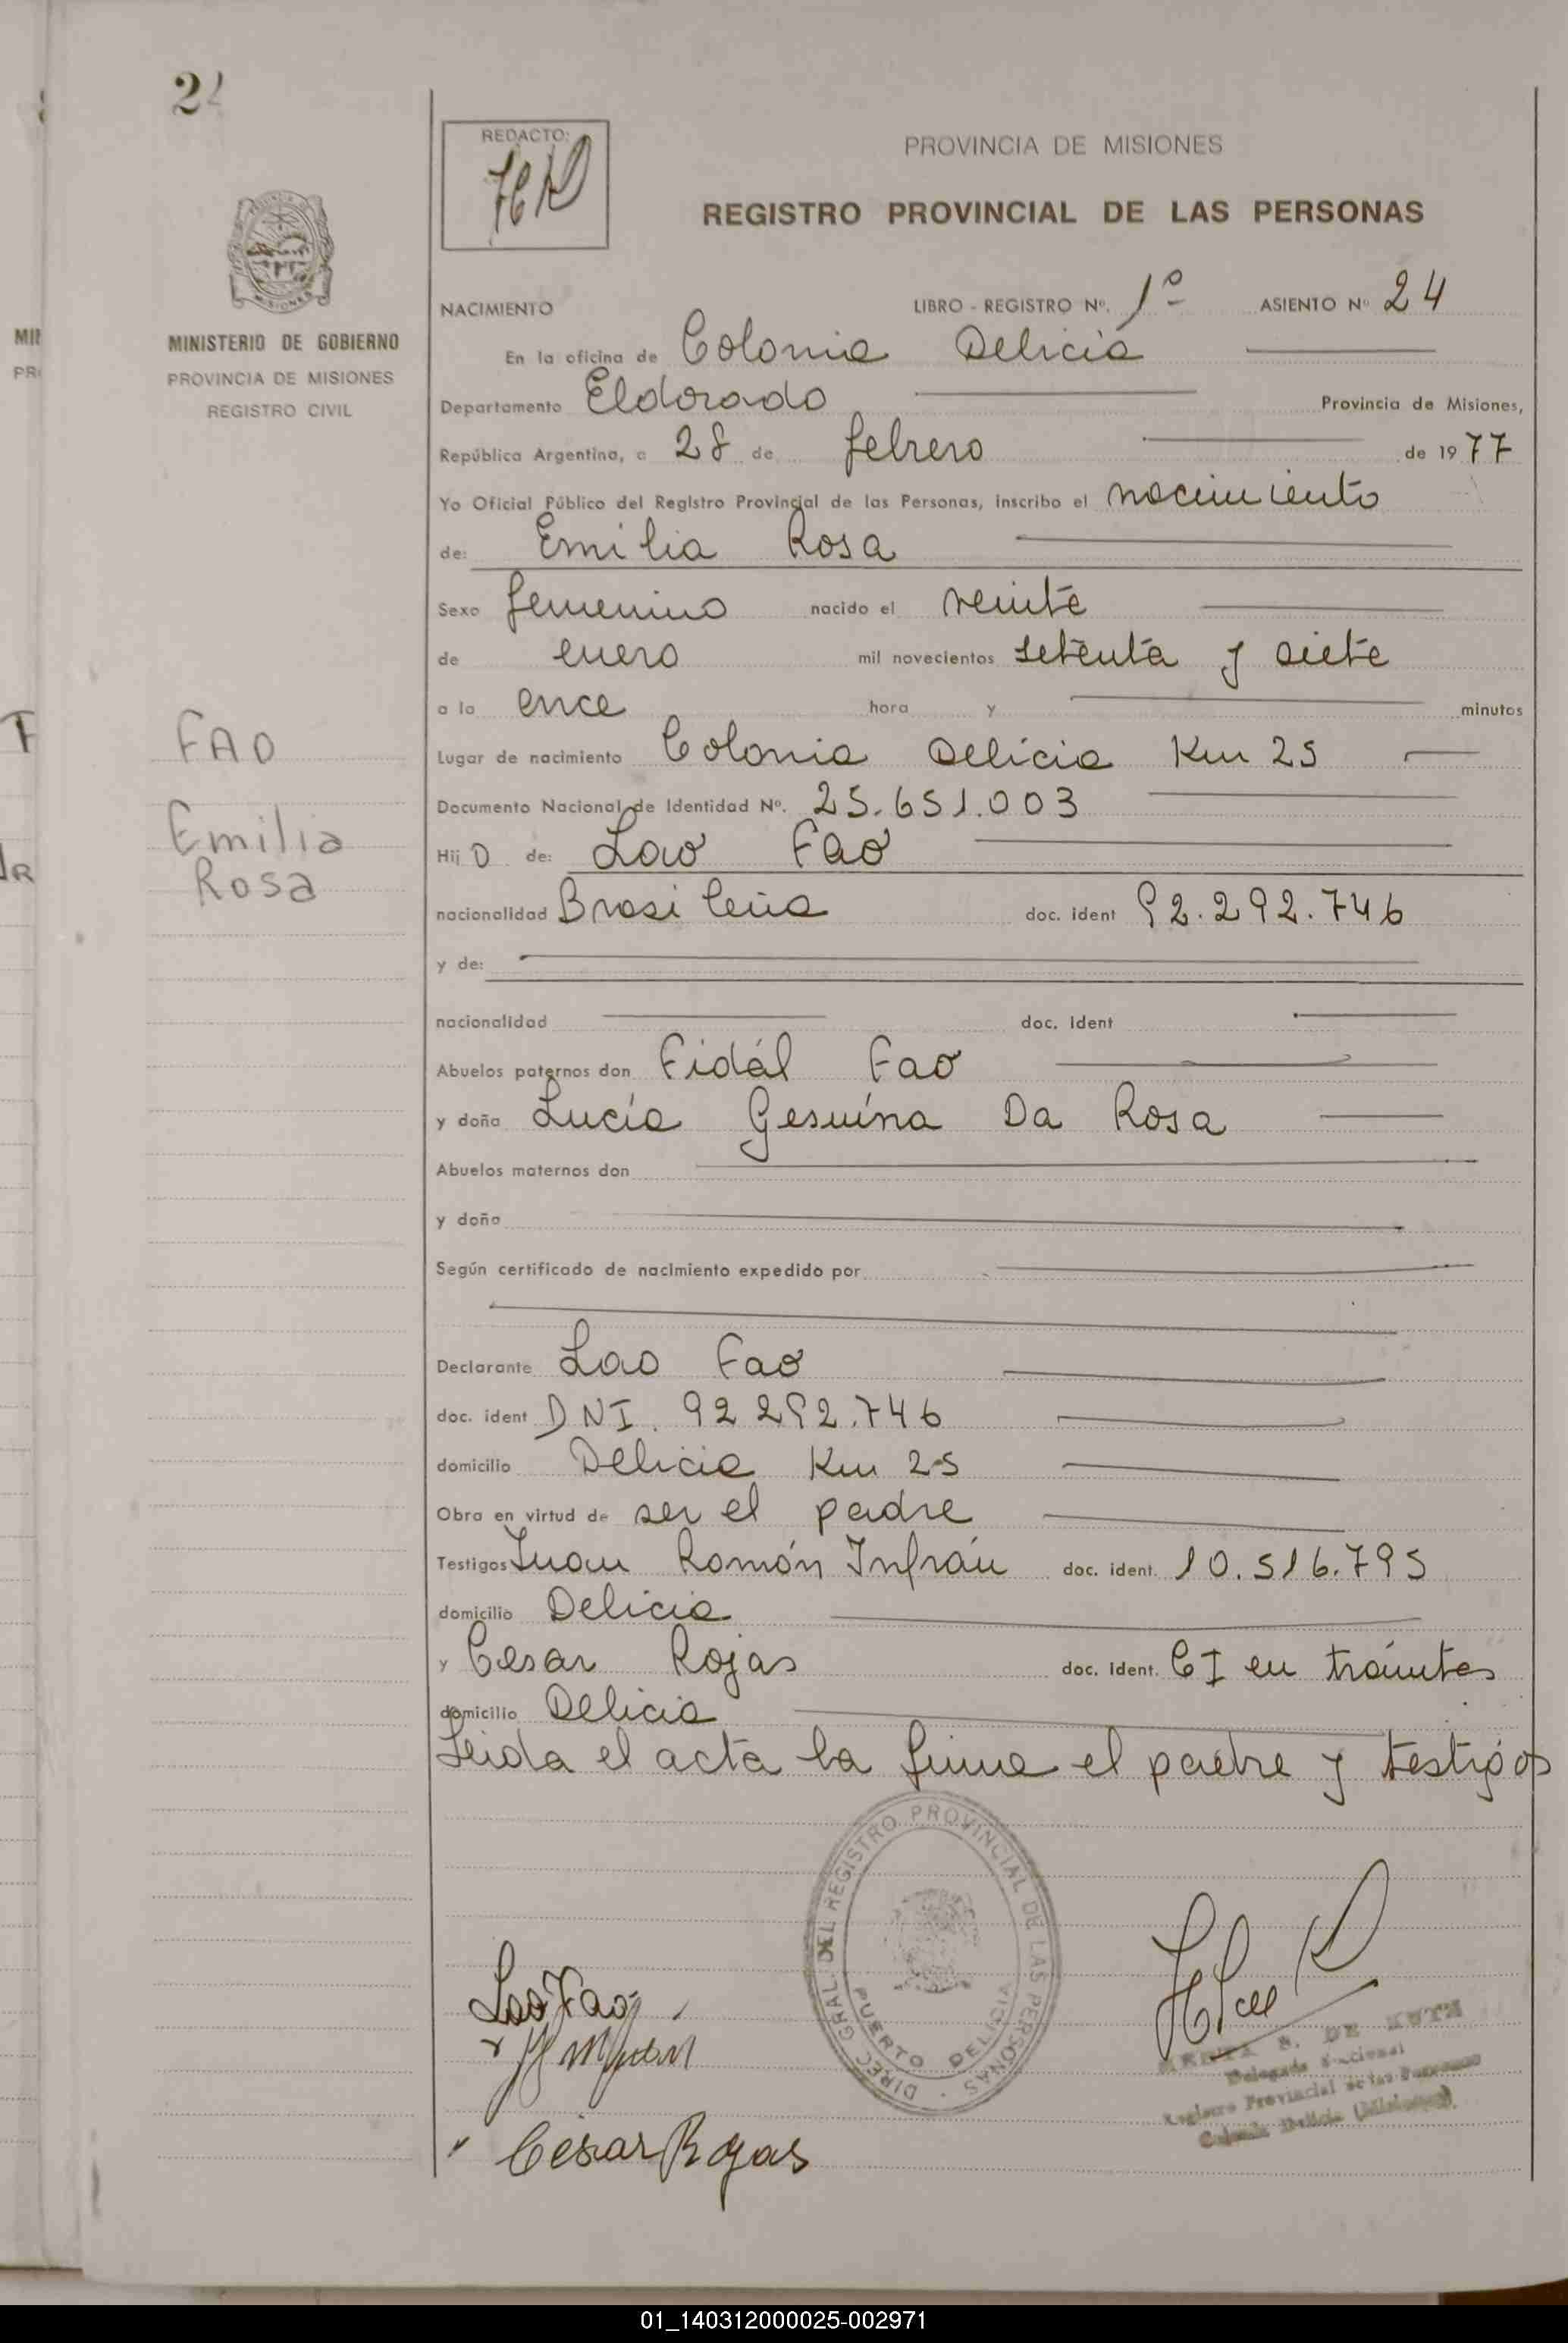 24
REDACTO:
PROVINCIA DE MISIONES
REGISTRO PROVINCIAL DE LAS PERSONAS
MINISTERIO DE GOBIERNO
PROVINCIA DE MISIONES
REGISTRO CIVIL
NACIMIENTO LIBRO - REGISTRO Nº. 1º ASIENTO Nº 24
En la oficina de Colonia Delicia
Departamento Eldorado Provincia de Misiones,
República Argentina, a 28 de febrero de 1977
Yo Oficial Público del Registro Provincial de las Personas, inscribo el nacimiento
de: Emilia Rosa
Sexo femenino nacido el veinte
de enero mil novecientos setenta y siete
a la once hora y minutos
FAO
Lugar de nacimiento Colonia Delicia Km 25
Documento Nacional de Identidad Nº. 25.651.003
Emilia
Rosa
Hij D de: Lao Fao
nacionalidad Brasileña doc. ident 92.292.746
y de:
nacionalidad doc. ident
Abuelos paternos don Fidál Fao
y doña Lucía Gesuína Da Rosa
Abuelos maternos don
y doña
Según certificado de nacimiento expedido por
Declarante Lao Fao
doc. ident DNI. 92 292.746
domicilio Delicia Km 25
Obra en virtud de ser el padre
Testigos Juan Román Infrán doc. ident. 10.516.795
domicilio Delicia
y Cesar Rojas doc. ident. CI en trámites
domicilio Delicia
Leida el acta la firma el padre y testigos
DIREC. GRAL. DEL REGISTRO PROVINCIAL DE LAS PERSONAS
PUERTO DELICIA
Lao Fao
Cesar Rojas
Registro Provincial de las Personas
Colonia Delicia (Misiones)
01_140312000025-002971